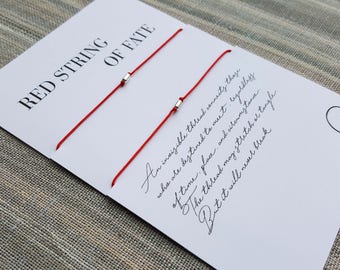 RED STRING
OF FATE
An invisible thread connects those
who are destined to meet regardless
of time, place and circumstance
The thread may stretch or tangle
But it will never break